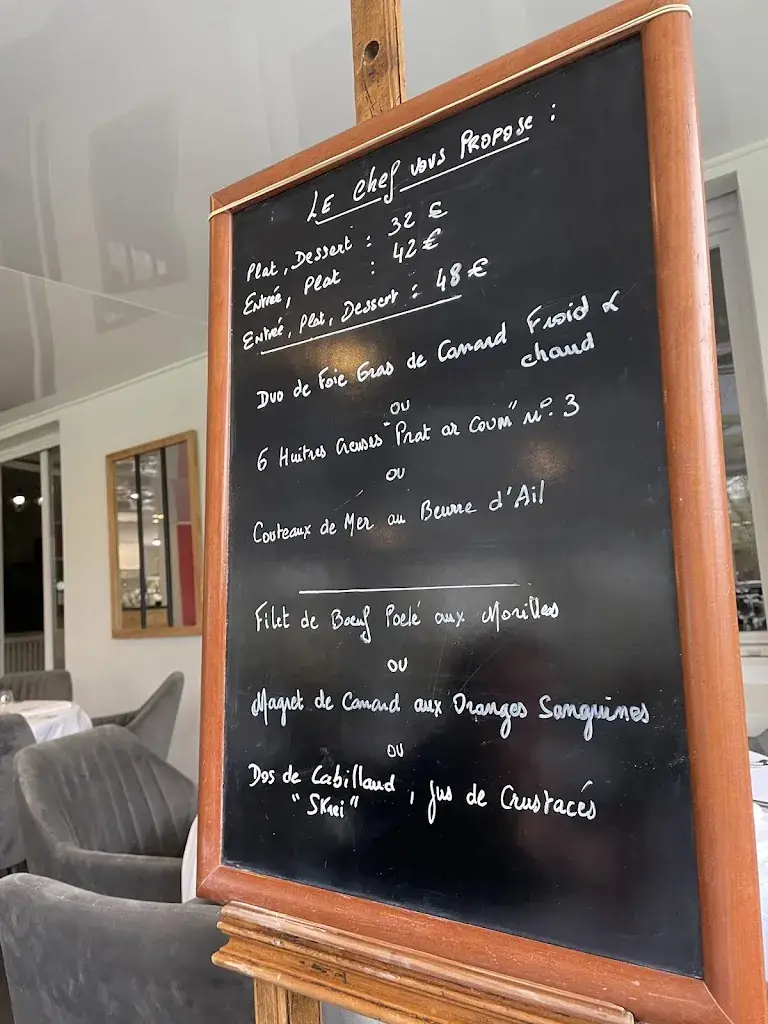 LE Chef vous PROPOSE :
Plat, Dessert : 32 €
Entrée, Plat : 42 €
Entrée, Plat, Dessert : 48 €
Duo de Foie Gras de Canard Froid &
chaud
ou
6 Huitres Creuses "Prat ar Coum" n°. 3
ou
Couteaux de Mer au Beurre d'Ail
Filet de Bœuf Poelé aux Morilles
ou
Magret de Canard aux Oranges Sanguines
ou
Dos de Cabillaud, Jus de Crustacés
"Skrei"